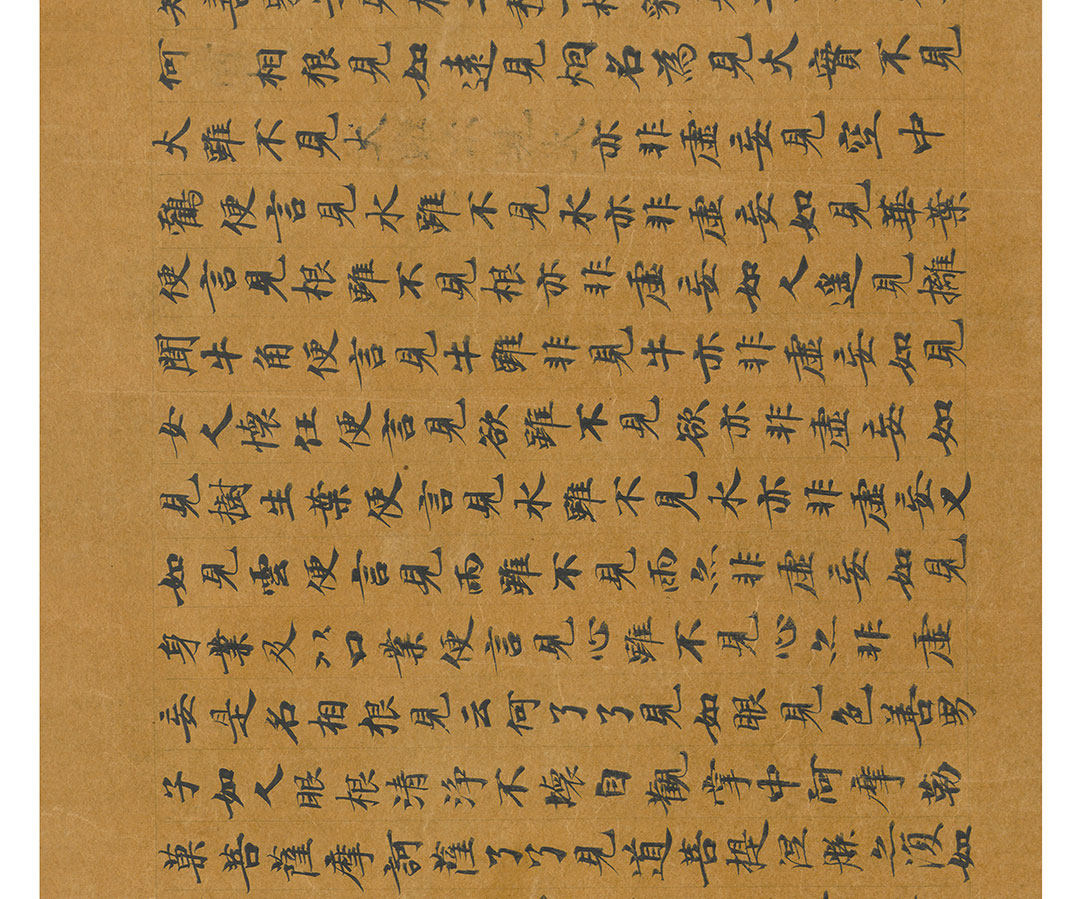 何 相狠見如遠見烟名為見火實不見
火雖不見 亦非虛妄見空中
鸖便言見水雖不見水亦非虛妄如見華葉
便言見根雖不見根亦非虛妄如人遥見攡
聞牛角便言見牛雖非見牛亦非虛妄如見
女人懷任便言見欲雖不見欲亦非虛妄如
見樹生葉便言見水雖不見水亦非虛妄又
如見雲便言見雨雖不見雨亦非虛妄如見
身業及以口業便言見心雖不見心亦非虛
妄是名相狠見云何了了見如眼見色善男
子如人眼根清淨不壞自觀掌中阿摩勒
菓菩薩摩訶薩了了見道菩提涅槃亦復如